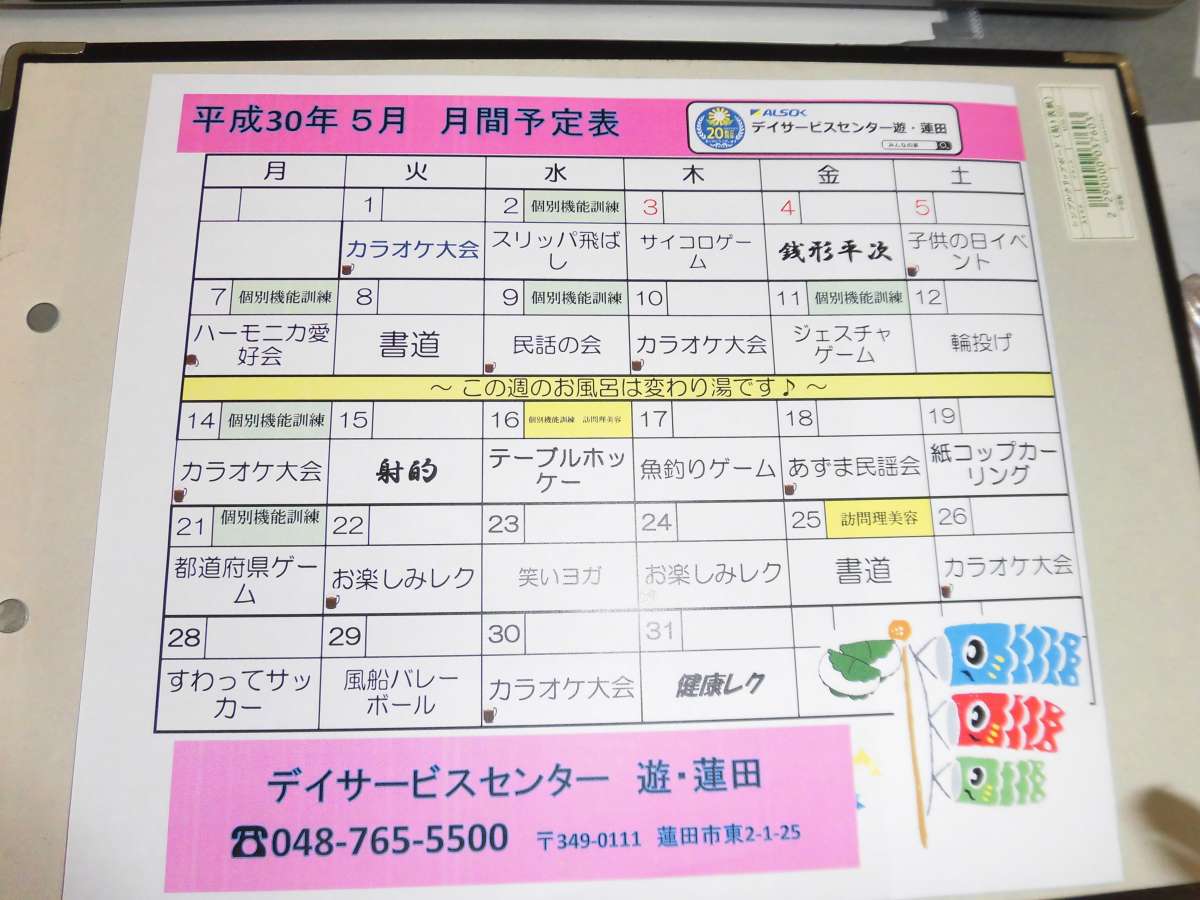 平成30年 5月 月間予定表
ALSOK
20
デイサービスセンター遊・蓮田
みんなの家
月 火 水 木 金 土
1 2 個別機能訓練 3 4 5
カラオケ大会 スリッパ飛ば サイコロゲー 銭形平次 子供の日イベ
し ム ント
7 個別機能訓練 8 9 個別機能訓練 10 11 個別機能訓練 12
ハーモニカ愛 書道 民話の会 カラオケ大会 ジェスチャ 輪投げ
好会 ゲーム
～ この週のお風呂は変わり湯です♪ ～
14 個別機能訓練 15 16 個別機能訓練 訪問理美容 17 18 19
カラオケ大会 射的 テーブルホッ 魚釣りゲーム あずま民謡会 紙コップカー
ケー リング
21 個別機能訓練 22 23 24 25 訪問理美容 26
都道府県ゲー お楽しみレク 笑いヨガ お楽しみレク 書道 カラオケ大会
ム
28 29 30 31
すわってサッ 風船バレー カラオケ大会 健康レク
カー ボール
デイサービスセンター 遊・蓮田
☎048-765-5500 〒349-0111 蓮田市東2-1-25